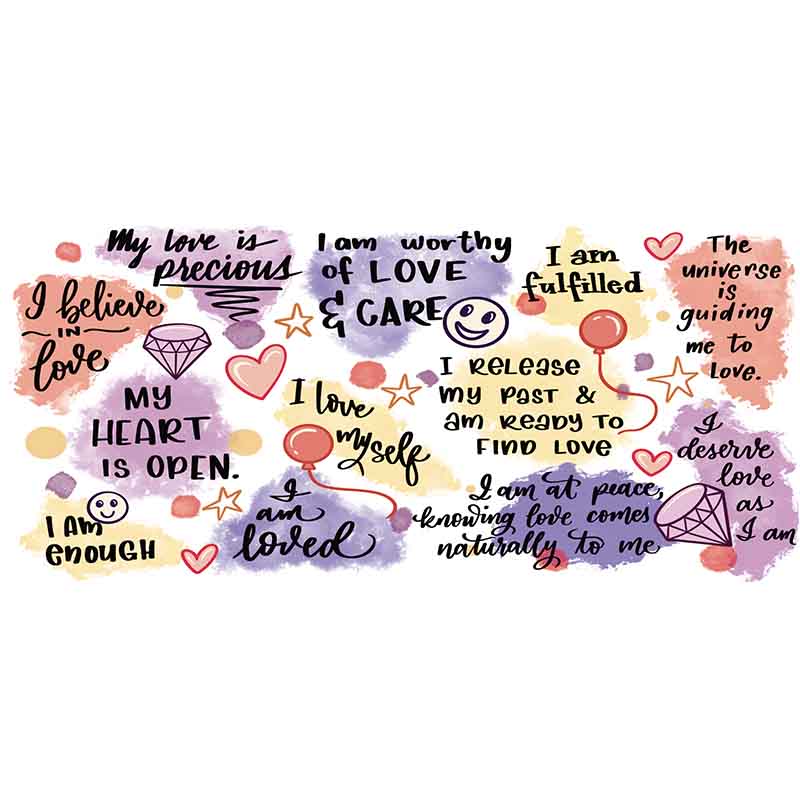 My love is
precious
I am worthy
of LOVE
& CARE
I am
fulfilled
The
universe
is
guiding
me to
love.
I believe
IN
love
MY
HEART
IS OPEN.
I love
myself
I RELEASE
MY PAST &
AM READY TO
FIND LOVE
I
deserve
love
as
I am
I AM
eNOUGH
I
am
loved
I am at peace,
knowing love comes
naturally to me